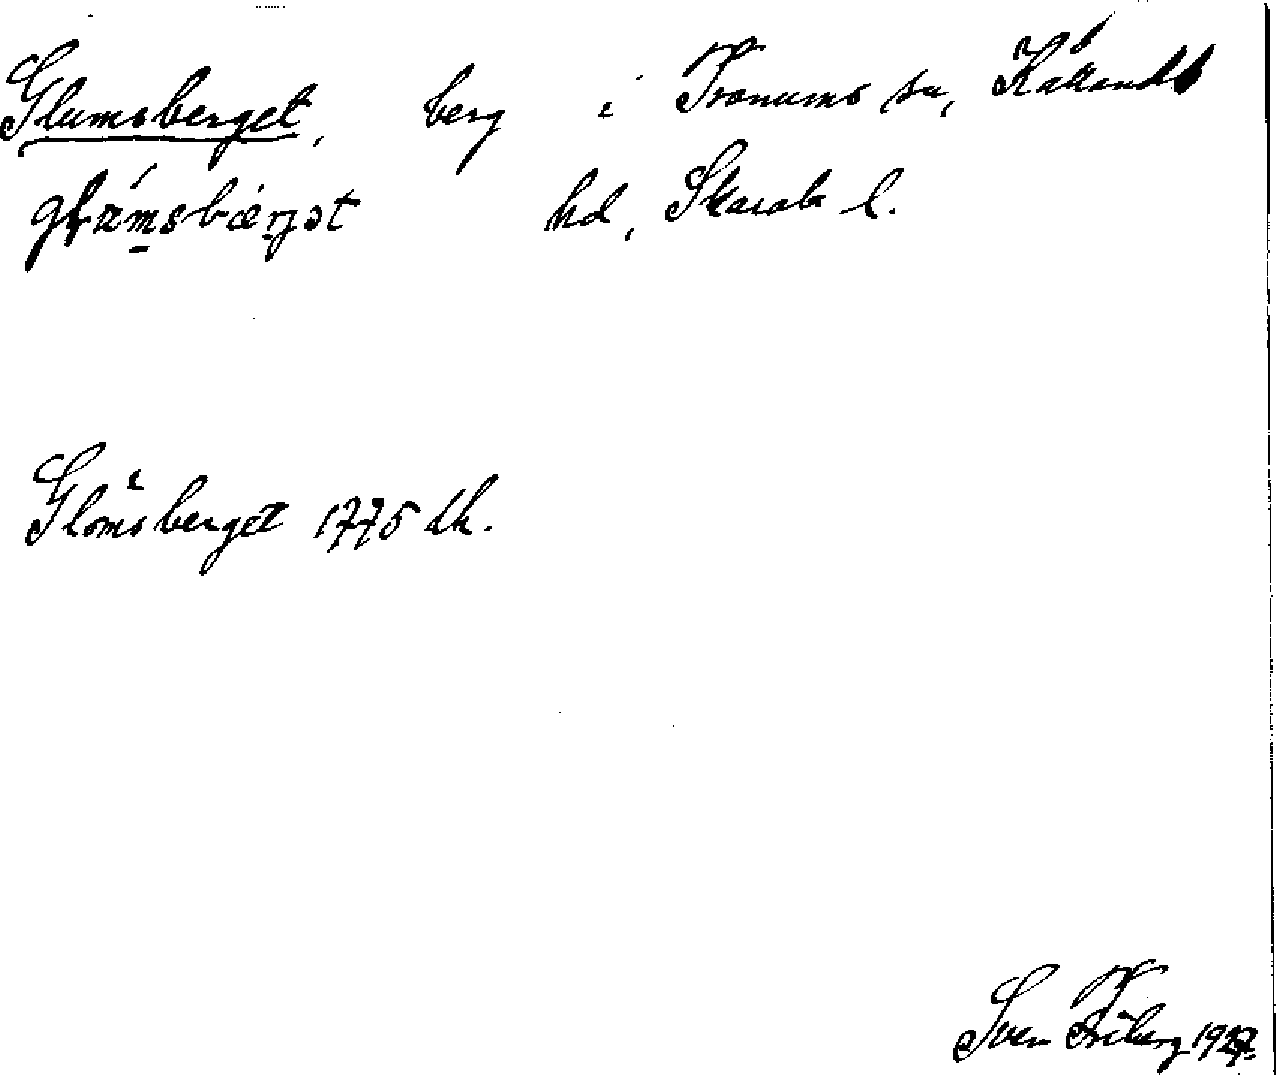 Glumsberget, berg i Tranums sn, Kållands
hd, Skarab. l.
Glomsberget 1775 lh.
Sven Friberg 1927.